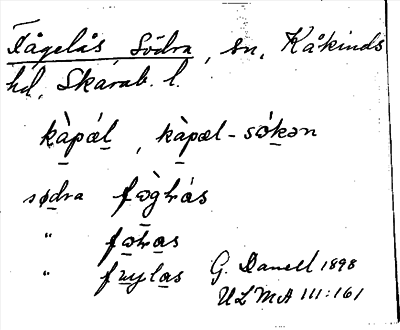 Fågelås, Södra, sn, Kåkinds
hd, Skarab. l.
kàpǽl, kàpæl-sókən
södra fəglrás
" fəlras
" fuylas G. Danell 1898
ULMA 111:161